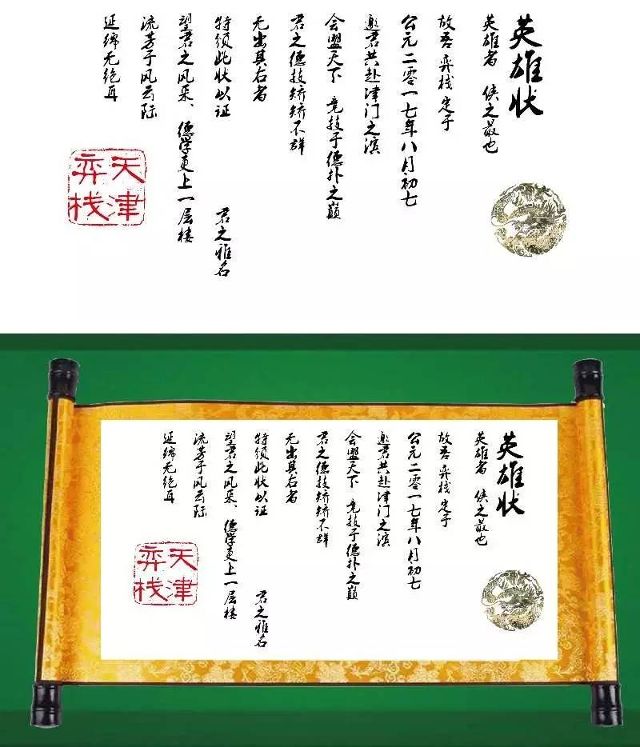 英雄状
英雄者 侠之最也
故吾 弈栈 定于
公元二零一七年八月初七
邀君共赴津门之滨
会盟天下 竞技于德扑之巅
君之德技矫矫不群
无出其右者
特颁此状以证 君之雅名
望君之风采、德学更上一层楼
流芳于风云际
延绵无绝耳
天津
弈栈
英雄状
英雄者 侠之最也
故吾 弈栈 定于
公元二零一七年八月初七
邀君共赴津门之滨
会盟天下 竞技于德扑之巅
君之德技矫矫不群
无出其右者
特颁此状以证 君之雅名
望君之风采、德学更上一层楼
流芳于风云际
延绵无绝耳
天津
弈栈